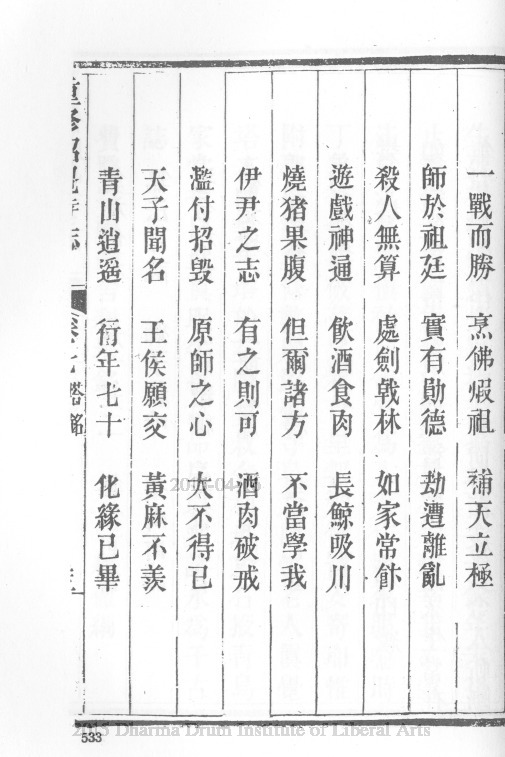 一戰而勝 烹佛煆祖 補天立極
師於祖廷 實有勛德 劫遭離亂
殺人無算 處劍戟林 如家常飰
遊戲神通 飲酒食肉 長鯨吸川
燒猪果腹 但爾諸方 不當學我
伊尹之志 有之則可 酒肉破戒
濫付招毀 原師之心 大不得已
天子聞名 王侯願交 黃麻不羨
青山逍遥 行年七十 化緣已畢
重修昭覺寺志 卷七 塔銘
533
2015 Dharma Drum Institute of Liberal Arts